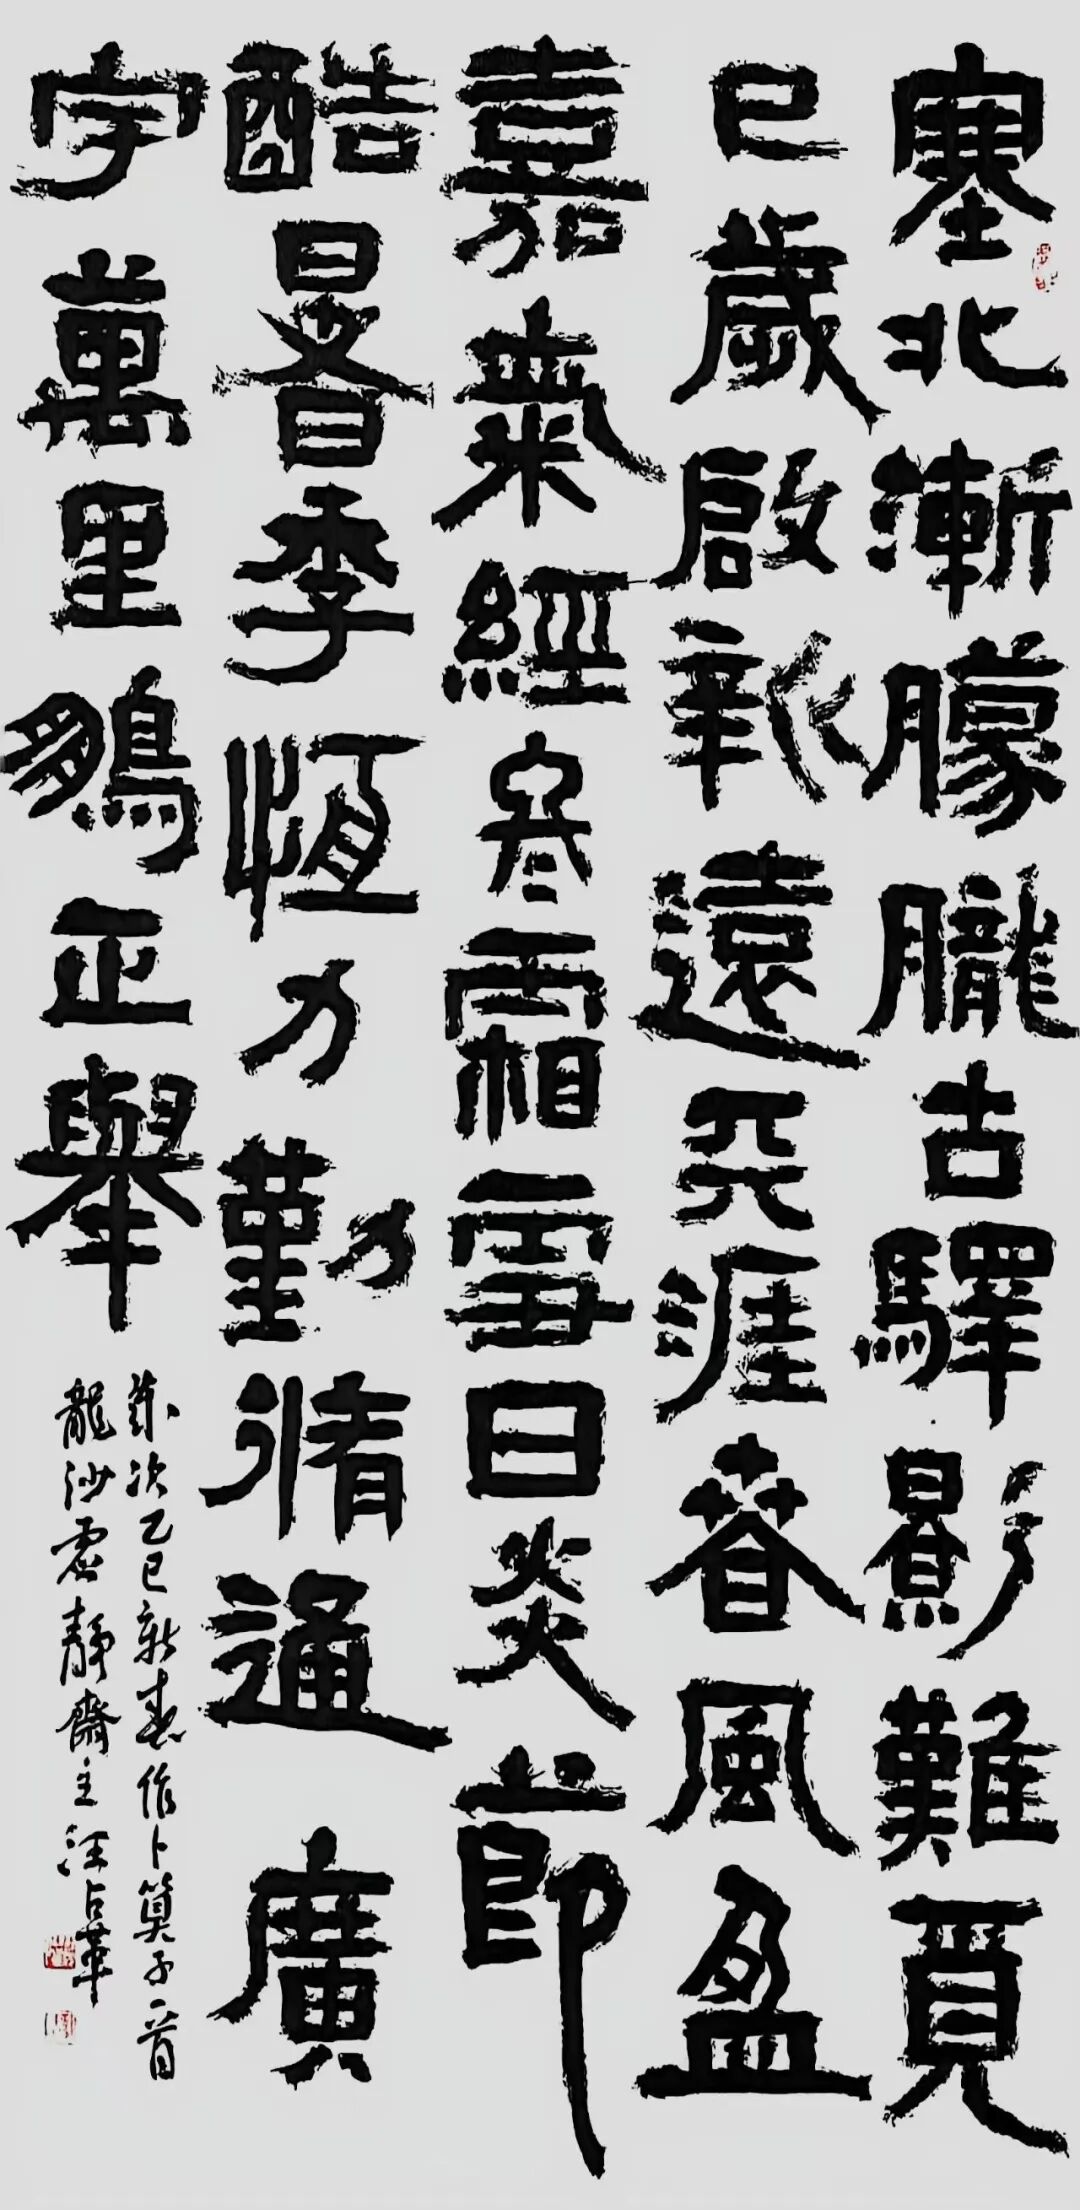 塞北漸朦朧古驛影難覓
巳歲啟新遠天涯春風盈
嘉氣經寒霜雪日炎節
酷暑季恆力勤脩通廣
宇萬里鵬正舉
歲次乙巳新春作卜算子一首
龍沙虛靜齋主汪占革